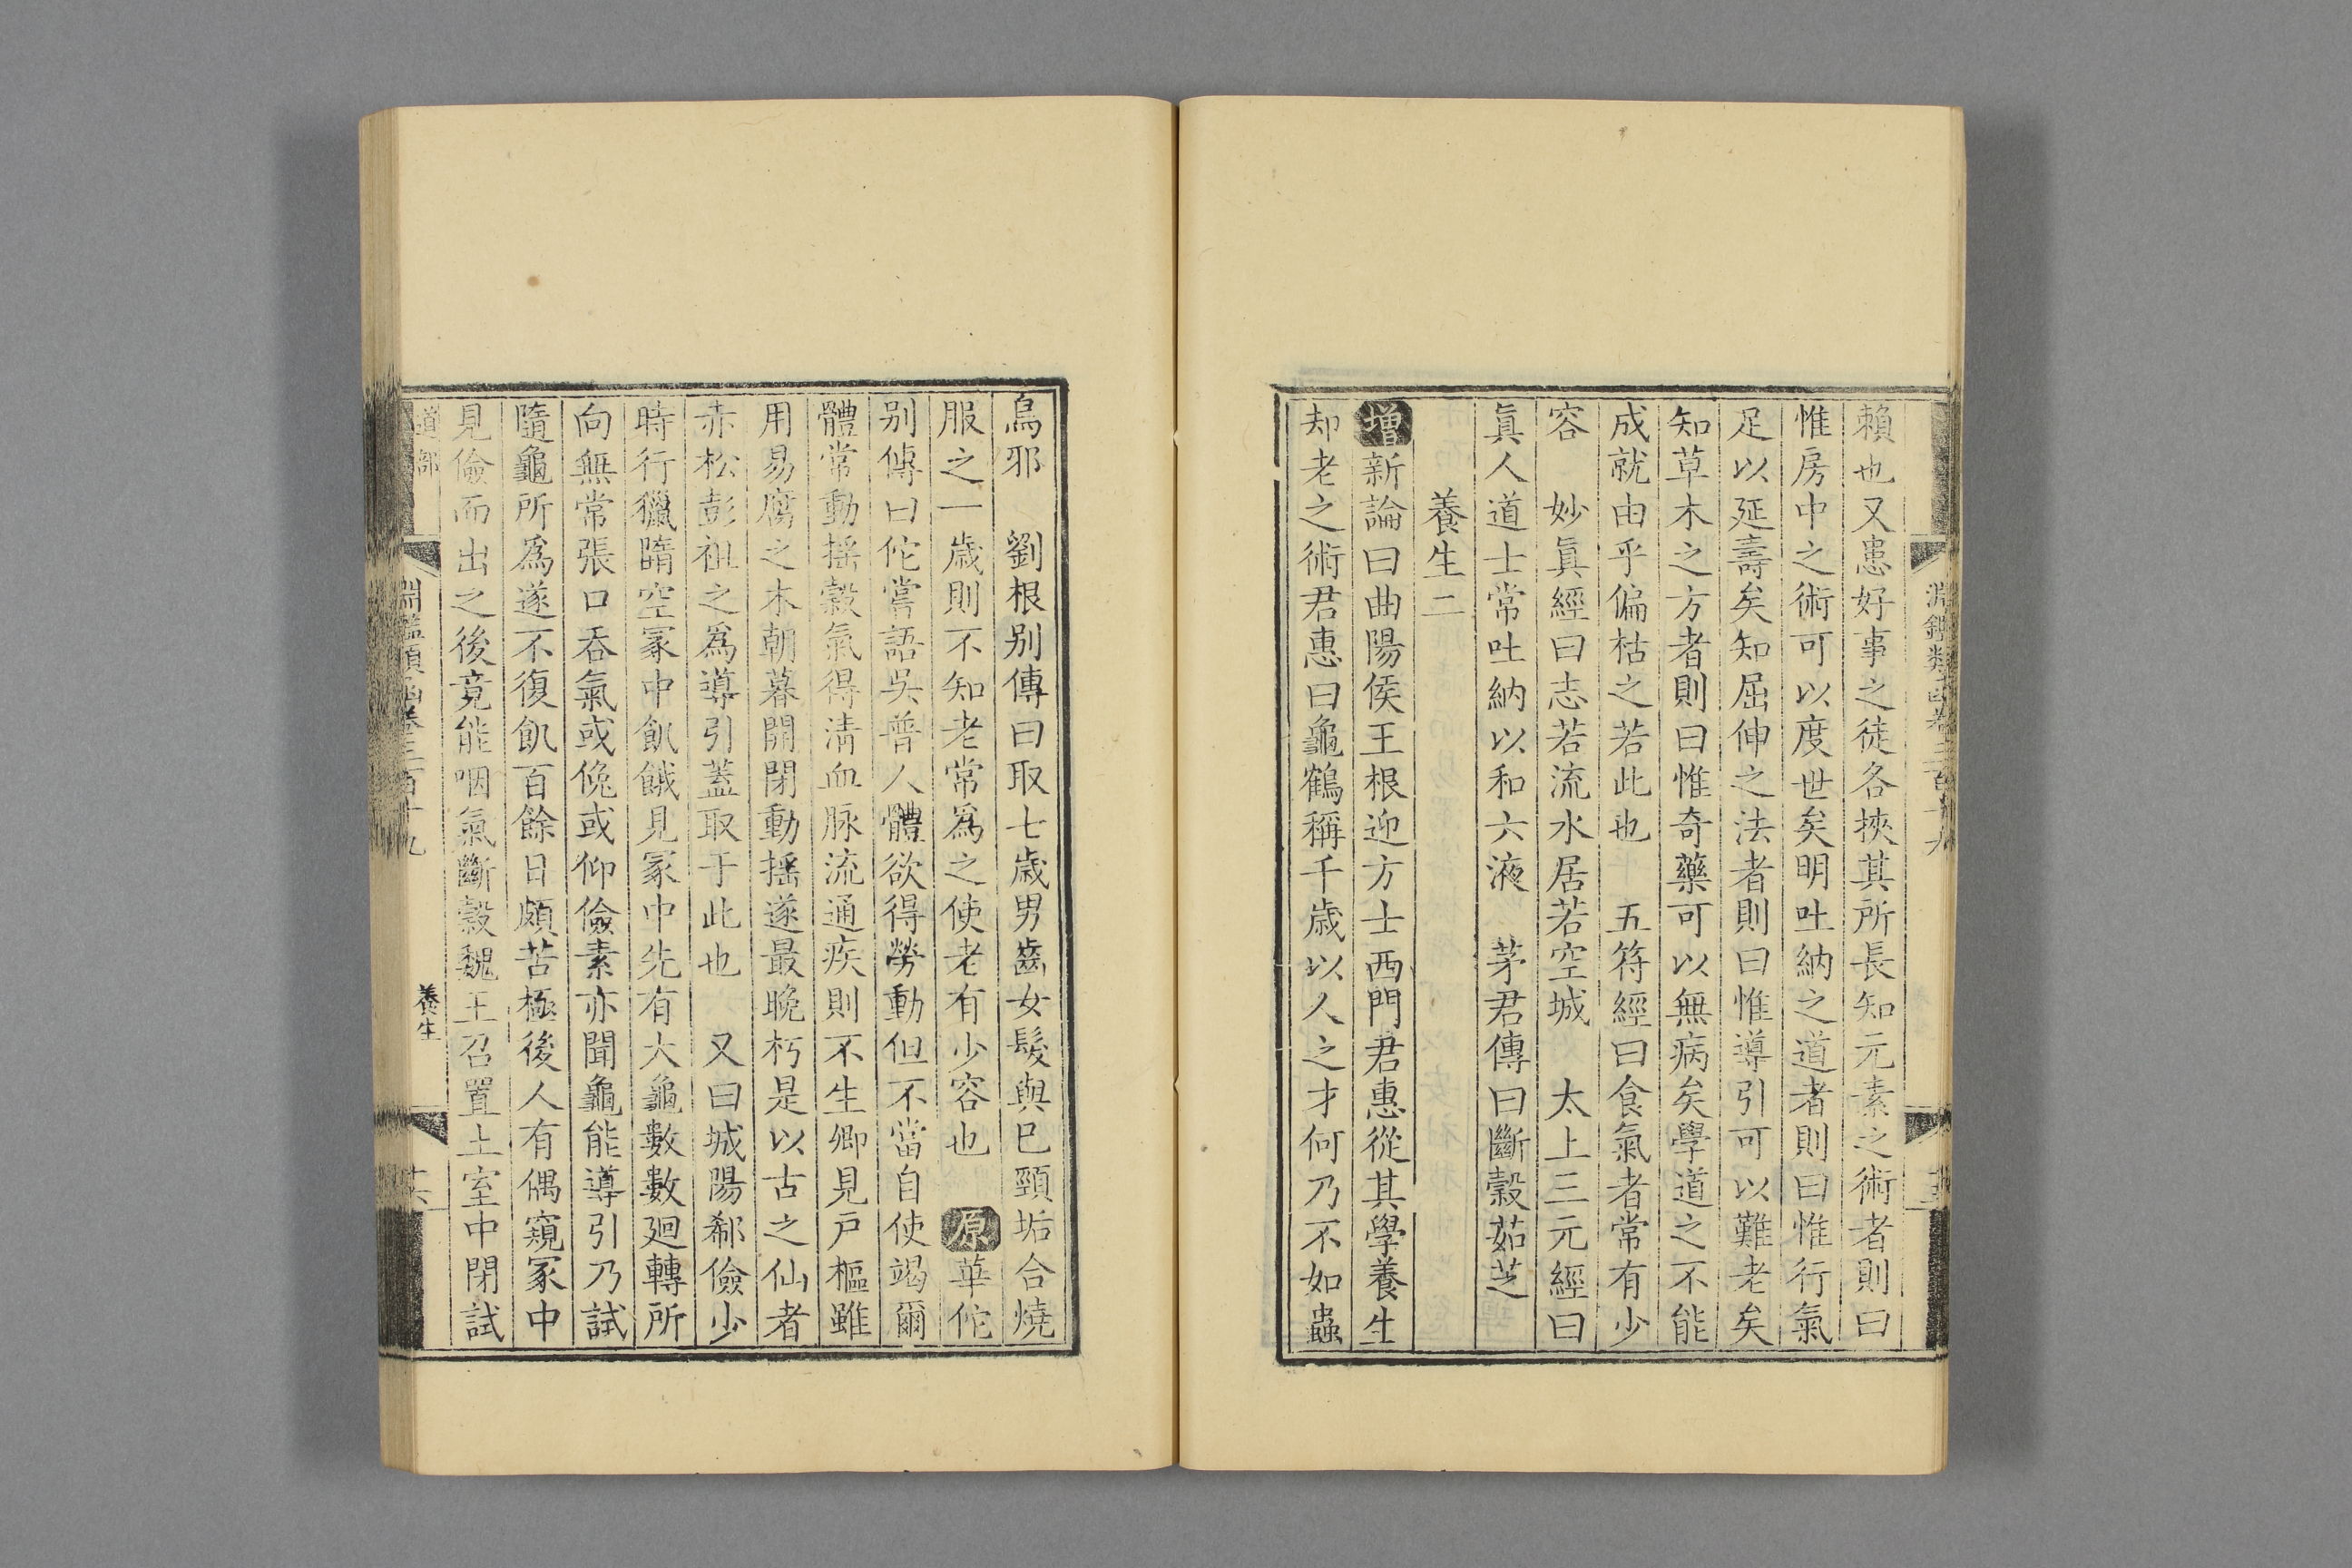 賴也又患好事之徒各挾其所長知元素之術者則曰
惟房中之術可以度世矣明吐納之道者則曰惟行氣
足以延壽矣知屈伸之法者則曰惟導引可以難老矣
知草木之方者則曰惟奇藥可以無病矣學道之不能
成就由乎偏枯之若此也 五符經曰食氣者常有少
容 妙眞經曰志若流水居若空城 太上三元經曰
眞人道士常吐納以和六液 茅君傳曰斷穀茹芝
養生二
增新論曰曲陽侯王根迎方士西門君惠從其學養生
却老之術君惠曰龜鶴稱千歲以人之才何乃不如蟲
鳥邪 劉根别傳曰取七歲男齒女髮與巳頸垢合燒
服之一歲則不知老常爲之使老有少容也 原華佗
别傳曰佗嘗語吳普人體欲得勞動但不當自使竭爾
體常動搖穀氣得淸血脉流通疾則不生卿見戸樞雖
用易腐之木朝暮開閉動搖遂最晚朽是以古之仙者
赤松彭祖之爲導引蓋取于此也 又曰城陽郗儉少
時行獵墮空冢中飢餓見冢中先有大龜數數廻轉所
向無常張口吞氣或俛或仰儉素亦聞龜能導引乃試
隨龜所爲遂不復飢百餘日頗苦極後人有偶窺冢中
見儉而出之後竟能咽氣斷穀魏王召置土室中閉試
道部
淵鑑類函卷三百十九
養生